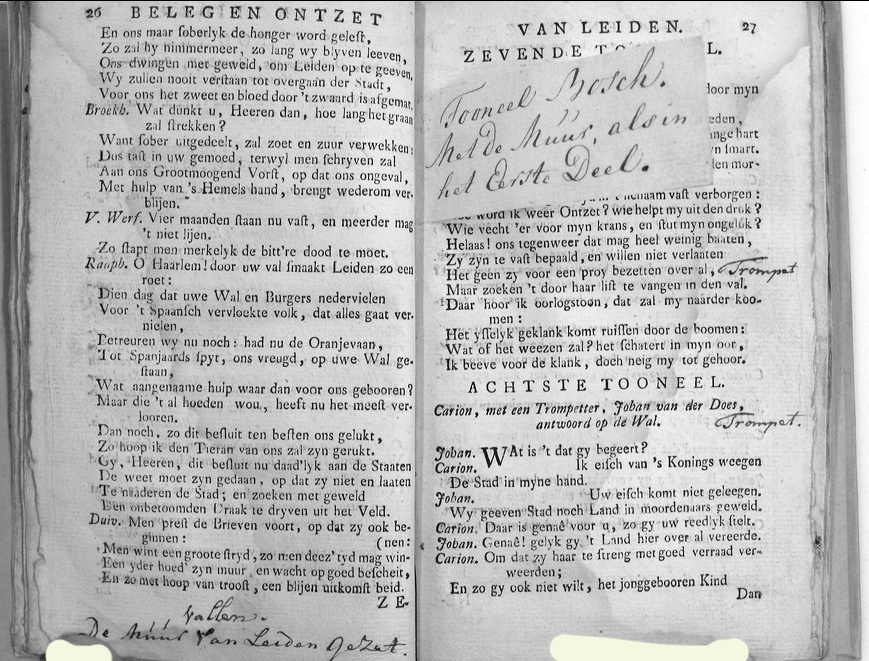 26 BELEG EN ONTZET
En ons maar soberlyk de honger word gelest,
Zo zal hy nimmermeer, zo lang wy blyven leeven,
Ons dwingen met geweld, om Leiden op te geeven,
Wy zullen nooit verstaan tot overgaan der Stadt,
Voor ons het zweet en bloed door 't zwaard is afgemat,
Broekh. Wat dunkt u, Heeren dan, hoe lang het graan
zal strekken?
Want sober uitgedeelt, zal zoet en zuur verwekken:
Dus tast in uw gemoed, terwyl men schryven zal
Aan ons Grootmoogend Vorst, op dat ons ongeval,
Met hulp van 's Hemels hand, brengt wederom ver-
blijen.
V. Werf. Vier maanden staan nu vast, en meerder mag
't niet lijen.
Zo stapt men merkelyk de bitt're dood te moet.
Raaph. O Haarlem! door uw val smaakt Leiden zo een
roet:
Dien dag dat uwe Wal en Burgers nedervielen
Voor 't Spaansch vervloekte volk, dat alles gaat ver-
nielen,
Betreuren wy nu noch: had nu de Oranjevaan,
Tot Spanjaards spyt, ons vreugd, op uwe Wal ge-
staan,
Wat aangenaame hulp waar dan voor ons gebooren?
Maar die 't al hoeden wou, heeft nu het meest ver-
looren.
Dan noch, zo dit besluit ten besten ons gelukt,
Zo hoop ik den Tieran van ons zal zyn gerukt.
Gy, Heeren, dit besluit nu daad'lyk aan de Staaten
De weet moet zyn gedaan, op dat zy niet en laaten
Te naaderen de Stad; en zoeken met geweld
Een onbetoomden Draak te dryven uit het Veld.
Duiv. Men prest de Brieven voort, op dat zy ook be-
ginnen: (nen:
Men wint een groote stryd, zo men deez' tyd mag win-
Een yder hoed' zyn muur, en wacht op goed bescheit,
En zo met hoop van troost, een blijen uitkomst beid.
ZE-
Wallen.
De Múúr van Leiden gezet.
VAN LEIDEN. 27
ZEVENDE TO L.
door myn
Tooneel Bosch.
Met de Múúr, als in
het Eerste Deel.
eden,
ange hart
yn smart.
len mor-
lichaam vast verborgen:
word ik weer Ontzet? wie helpt my uit den druk?
Wie vecht 'er voor myn krans, en stut myn ongeluk?
Helaas! ons tegenweer dat mag heel weinig baaten,
Zy zyn te vast bepaald, en willen niet verlaaten
Het geen zy voor een proy bezetten over al, Trompet
Maar zoeken 't door haar list te vangen in den val.
Daar hoor ik oorlogstoon, dat zal my naarder koo-
men:
Het ysselyk geklank komt ruissen door de boomen:
Wat of het weezen zal? het schatert in myn oor,
Ik beeve voor de klank, doch neig my tot gehoor.
ACHTSTE TOONEEL.
Carion, met een Trompetter, Johan van der Does,
antwoord op de Wal. Trompet.
Johan. WAt is 't dat gy begeert?
Carion. Ik eisch van 's Konings weegen
De Stad in myne hand.
Johan. Uw eisch komt niet geleegen.
Wy geeven Stad noch Land in moordenaars geweld.
Carion. Daar is genaê voor u, zo gy uw reedlyk stelt.
Johan. Genaê! gelyk gy 't Land hier over al vereerde.
Carion. Om dat zy haar te streng met goed verraad ver-
weerden;
En zo gy ook niet wilt, het jonggebooren Kind
Dan